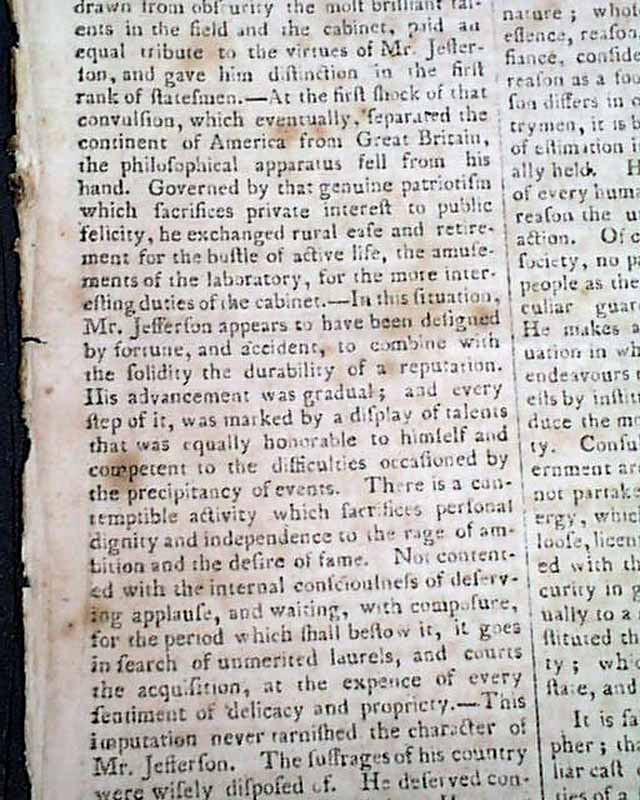 drawn from obſcurity the moſt brilliant tal-
ents in the field and the cabinet, paid an
equal tribute to the virtues of Mr. Jeffer-
ſon, and gave him diſtinction in the firſt
rank of ſtateſmen.—At the firſt ſhock of that
convulſion, which eventually, ſeparated the
continent of America from Great Britain,
the philoſophical apparatus fell from his
hand. Governed by that genuine patriotiſm
which ſacrifices private intereſt to public
felicity, he exchanged rural eaſe and retire-
ment for the buſtle of active life, the amuſe-
ments of the laboratory, for the more inter-
eſting duties of the cabinet.—In this ſituation,
Mr. Jefferſon appears to have been deſigned
by fortune, and accident, to combine with
the ſolidity the durability of a reputation.
His advancement was gradual; and every
ſtep of it, was marked by a diſplay of talents
that was equally honorable to himſelf and
competent to the difficulties occaſioned by
the precipitancy of events. There is a con-
temptible activity which ſacrifices perſonal
dignity and independence to the rage of am-
bition and the deſire of fame. Not content-
ed with the internal conſciouſneſs of deſerv-
ing applauſe, and waiting, with compoſure,
for the period which ſhall beſtow it, it goes
in ſearch of unmerited laurels, and courts
the acquiſition, at the expence of every
ſentiment of delicacy and propriety.—This
imputation never tarniſhed the character of
Mr. Jefferſon. The ſuffrages of his country
were wiſely diſpoſed of. He deſerved con-
nature; who
eſſence, reaſo
fiance, confide
reaſon as a fou
ſon differs in
trymen, it is b
of eſtimation i
ally held. H
of every hum
reaſon the u
action. Of c
ſociety, no pa
people as the
culiar guar
He makes a
uation in wh
endeavours t
eſts by inſtit
duce the mo
ty. Conſu
ernment are
not partak
ergy, whic
looſe, licen
ed with th
curity in g
ually to a
ſtituted th
ty; whic
ſtate, and
It is ſa
pher; tha
liar caſt
ties of a